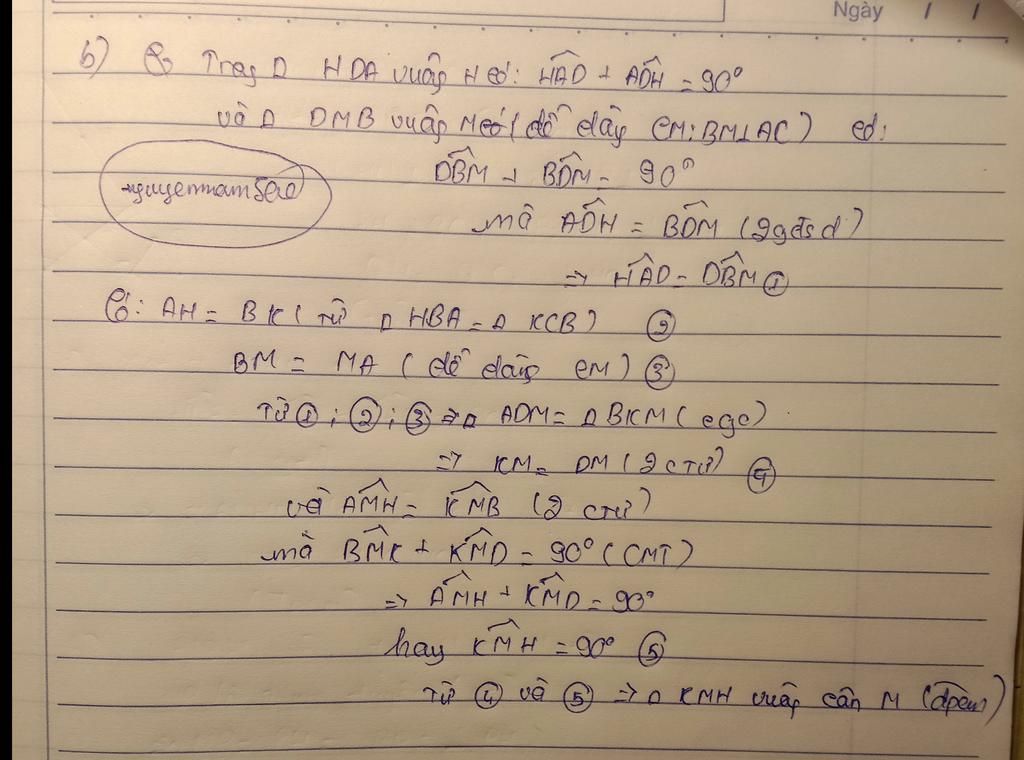 Ngày / /
b) Có Trong Δ HDA vuông H có: HAD + ADH = 90°
và Δ DMB vuông M có (dễ dàng CM: BM⊥AC) có:
DBM + BDM = 90°
nguyennam5eo
mà ADH = BDM (2gđđ)
=> HAD = DBM ①
Có: AH = BK (từ Δ HBA = Δ KCB) ②
BM = MA (dễ dàng CM) ③
Từ ①; ②; ③ => Δ ADM = Δ BKM (cgc)
=> KM = DM (2 ctứ) ④
và AMH = KMB (2 ctứ)
mà BMK + KMD = 90° (CMT)
=> AMH + KMD = 90°
hay KMH = 90° ⑤
Từ ④ và ⑤ => Δ KMH vuông cân M (đpcm)